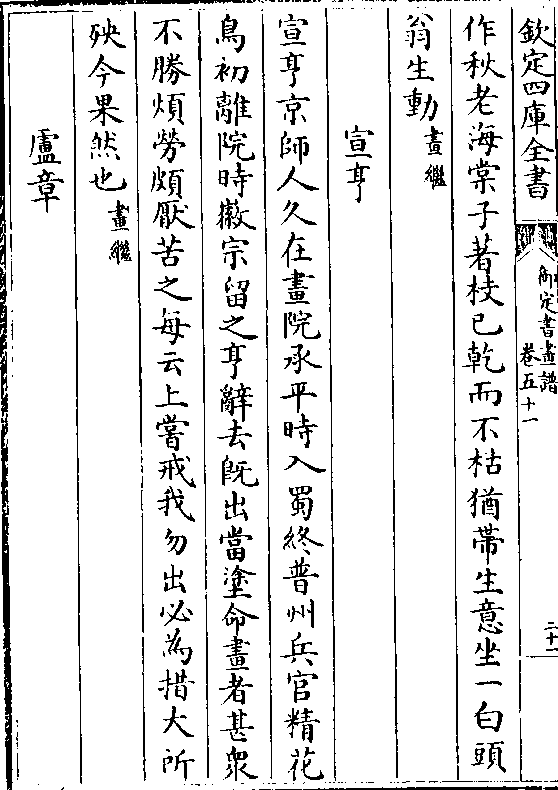 欽定四庫全書
御定書畫譜
卷五十一
二十一
作秋老海棠子著枝已乾而不枯猶帶生意坐一白頭
翁生動畫繼
宣亨
宣亨京師人久在畫院承平時入蜀終普州兵官精花
鳥初離院時徽宗留之亨辭去既出當塗命畫者甚衆
不勝煩勞頗厭苦之每云上嘗戒我勿出必為措大所
殃今果然也畫繼
盧章